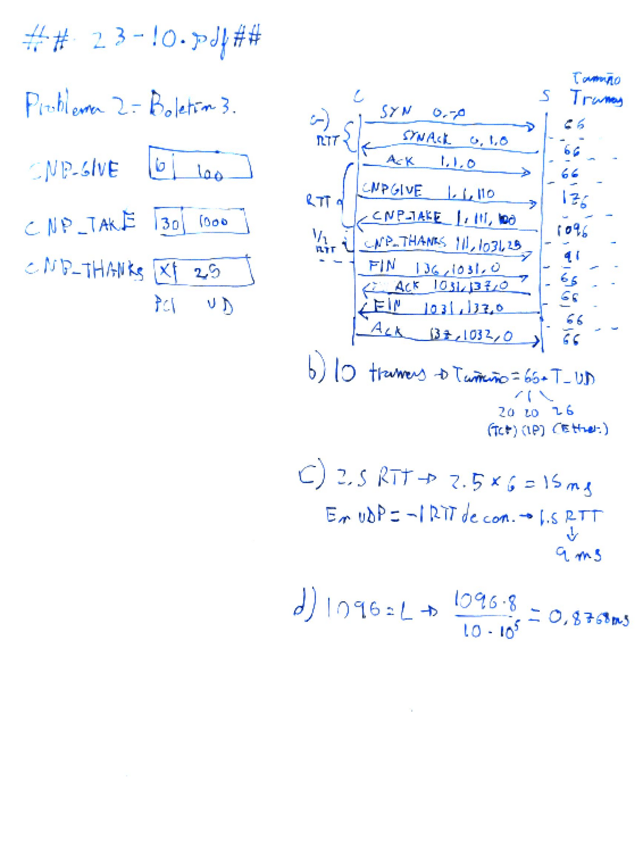 ## 23-10.pdf##
Problema 2 - Boletín 3.
CNP-GIVE 10 100
CNP_TAKE 30 1000
CNP_THANKS X 25
PCI UD
Tamaño
C S Tramas
a) SYN 0,-,0 66
RTT SYNACK 0,1,0 66
ACK 1,1,0 66
RTT CNPGIVE 1,1,110 176
CNP_TAKE 1,111, 1096
1/2 RTT CNP_THANKS 111,1031,25 91
FIN 136,1031,0 66
ACK 1031,137,0 66
FIN 1031,137,0 66
ACK 137,1032,0 66
b) 10 tramas → Tamaño = 66 + T_UD
20 20 26
(TCP) (IP) (Ether.)
c) 2.5 RTT → 2.5 × 6 = 15 ms
En UDP = -1 RTT de con. → 1.5 RTT
↓
9 ms
d) 1096 = L → 1096·8 / 10·10⁵ = 0,8768 ms